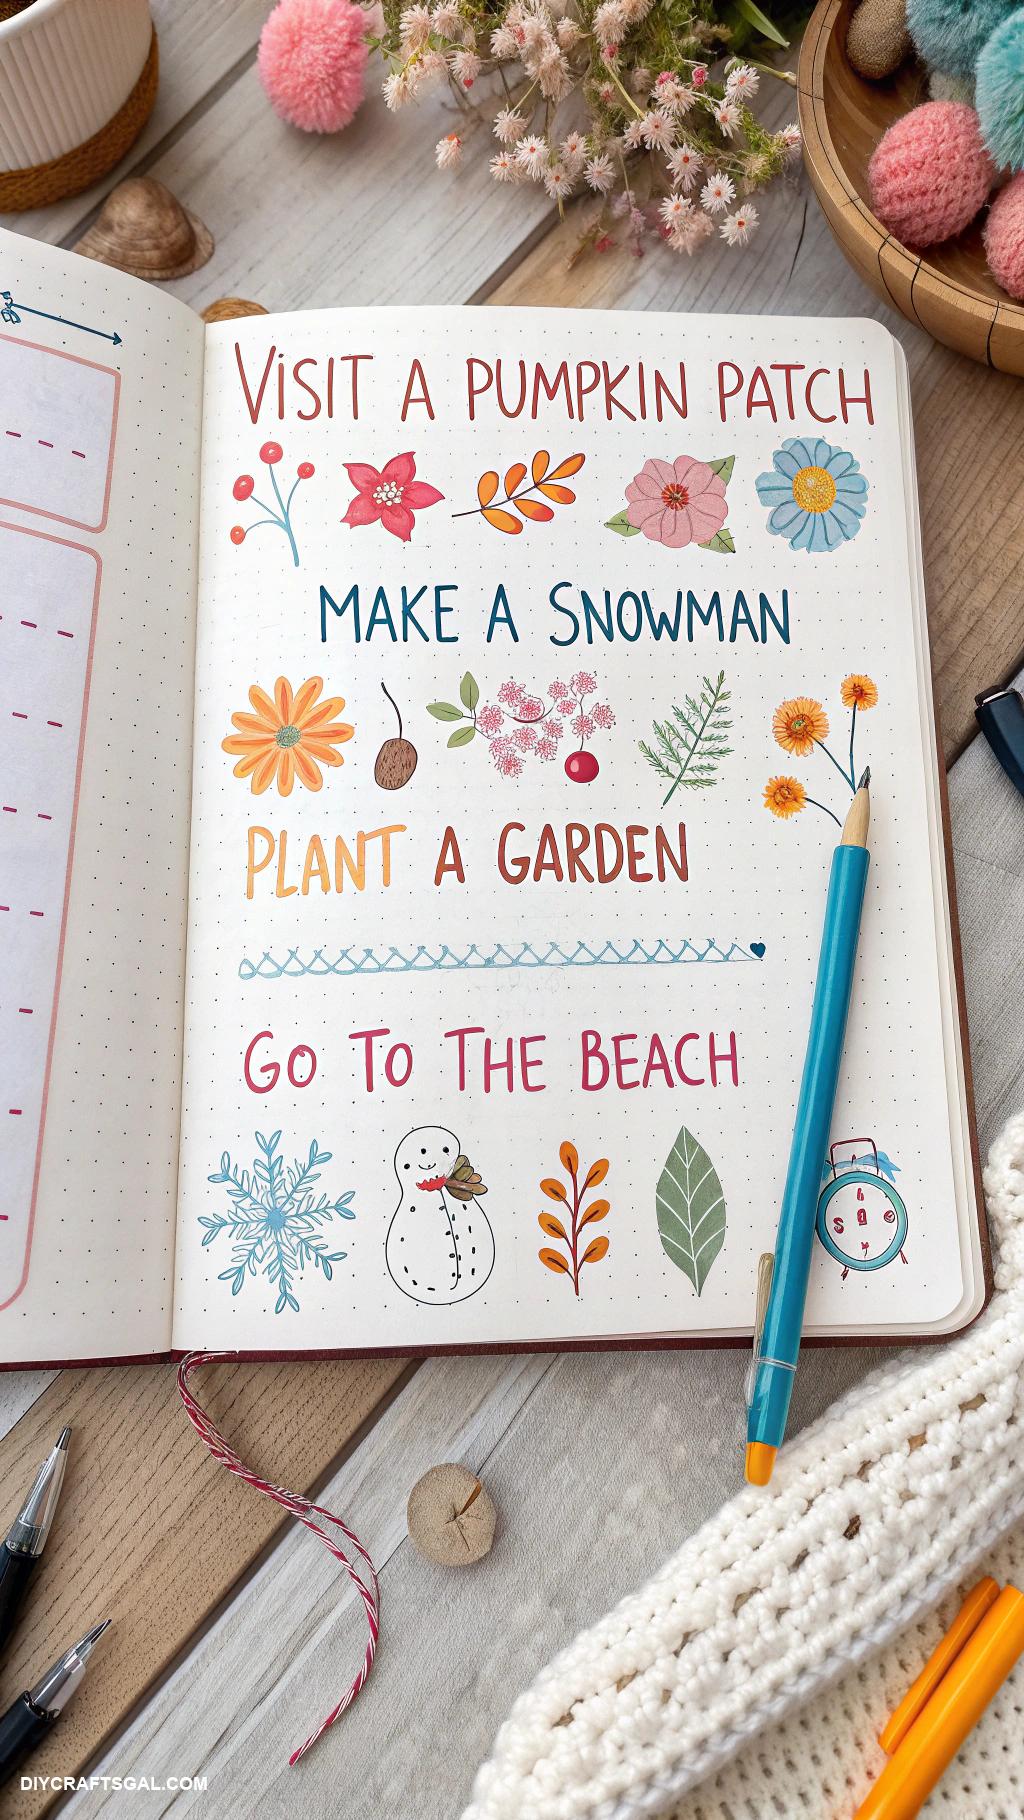 VISIT A PUMPKIN PATCH
MAKE A SNOWMAN
PLANT A GARDEN
GO TO THE BEACH
DIYCRAFTSGAL.COM